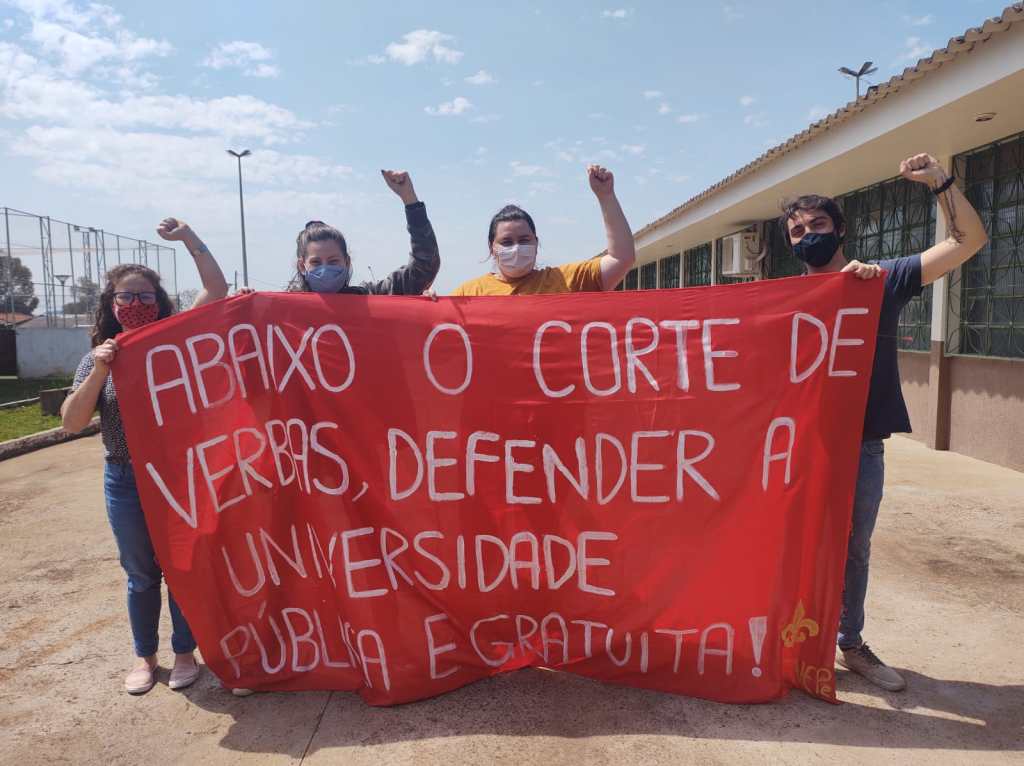 ABAIXO O CORTE DE
VERBAS, DEFENDER A
UNIVERSIDADE
PÚBLICA E GRATUITA!